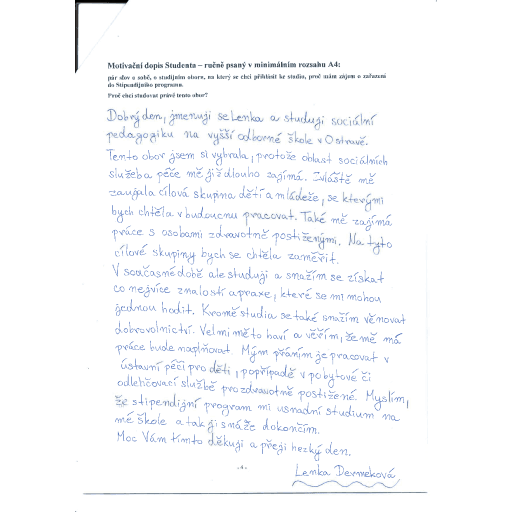 Motivační dopis Studenta – ručně psaný v minimálním rozsahu A4:
pár slov o sobě, o studijním oboru, na který se chci přihlásit ke studiu, proč mám zájem o zařazení
do Stipendijního programu.
Proč chci studovat právě tento obor?
Dobrý den, jmenuji se Lenka a studuji sociální
pedagogiku na vyšší odborné škole v Ostravě.
Tento obor jsem si vybrala, protože oblast sociálních
služeb a péče mě již dlouho zajímá. Zvláště mě
zaujala cílová skupina dětí a mládeže, se kterými
bych chtěla v budoucnu pracovat. Také mě zajímá
práce s osobami zdravotně postiženými. Na tyto
cílové skupiny bych se chtěla zaměřit.
V současné době ale studuji a snažím se získat
co nejvíce znalostí a praxe, které se mi mohou
jednou hodit. Kromě studia se také snažím věnovat
dobrovolnictví. Velmi mě to baví a věřím, že mě má
práce bude naplňovat. Mým přáním je pracovat v
ústavní péči pro děti, popřípadě v pobytové či
odlehčovací službě pro zdravotně postižené. Myslím,
že stipendijní program mi usnadní studium na
mé škole a tak ji snáze dokončím.
Moc Vám tímto děkuji a přeji hezký den.
- 4 -
Lenka